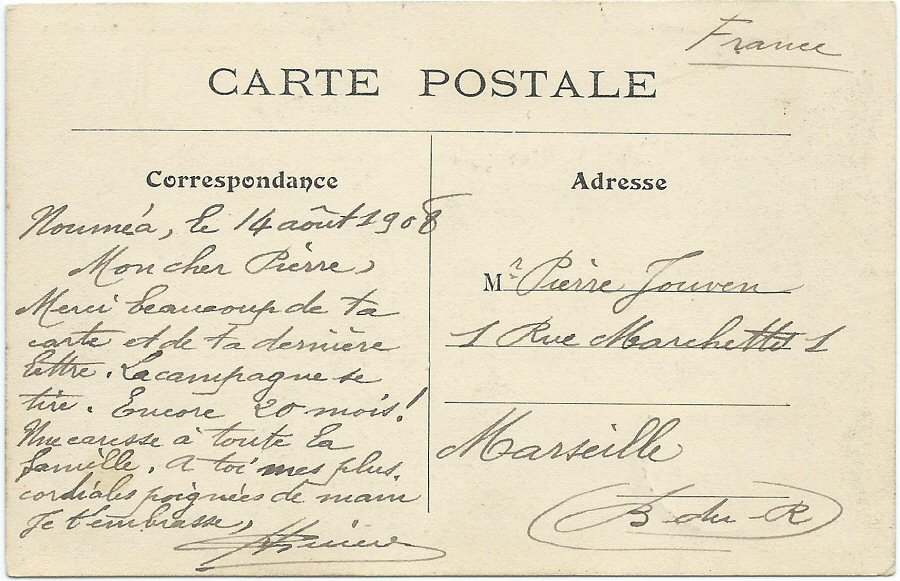 France
CARTE POSTALE
Correspondance
Nouméa, le 14 août 1908
Mon cher Pierre,
Merci beaucoup de ta
carte et de ta dernière
lettre. La campagne se
tire. Encore 20 mois!
Une caresse à toute la
famille. A toi mes plus
cordiales poignées de main
Je t'embrasse,
Adresse
Mr Pierre Jouven
1 Rue Marchetti 1
Marseille
(B-du-R)